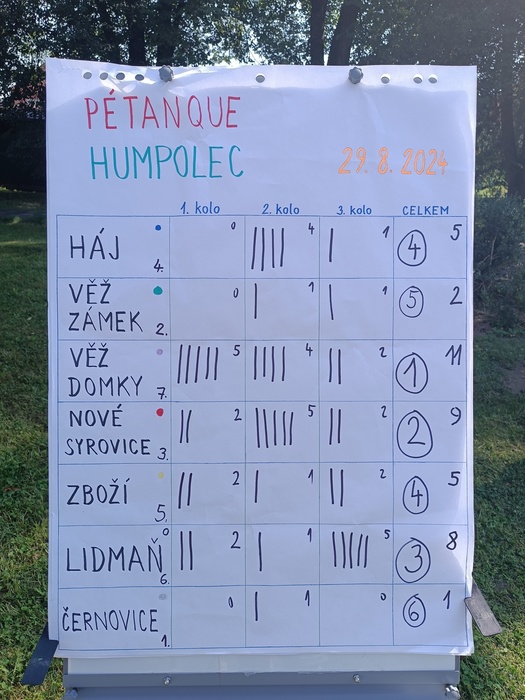 PÉTANQUE
HUMPOLEC
29. 8. 2024
1. kolo 2. kolo 3. kolo CELKEM
HÁJ 4. 0 |||| 4 | 1 4 5
VĚŽ
ZÁMEK 2. 0 | 1 | 1 5 2
VĚŽ
DOMKY 7. ||||| 5 |||| 4 || 2 1 11
NOVÉ
SYROVICE 3. || 2 ||||| 5 || 2 2 9
ZBOŽÍ 5. || 2 | 1 || 2 4 5
LIDMAŇ 6. || 2 | 1 ||||| 5 3 8
ČERNOVICE 1. 0 | 1 0 6 1